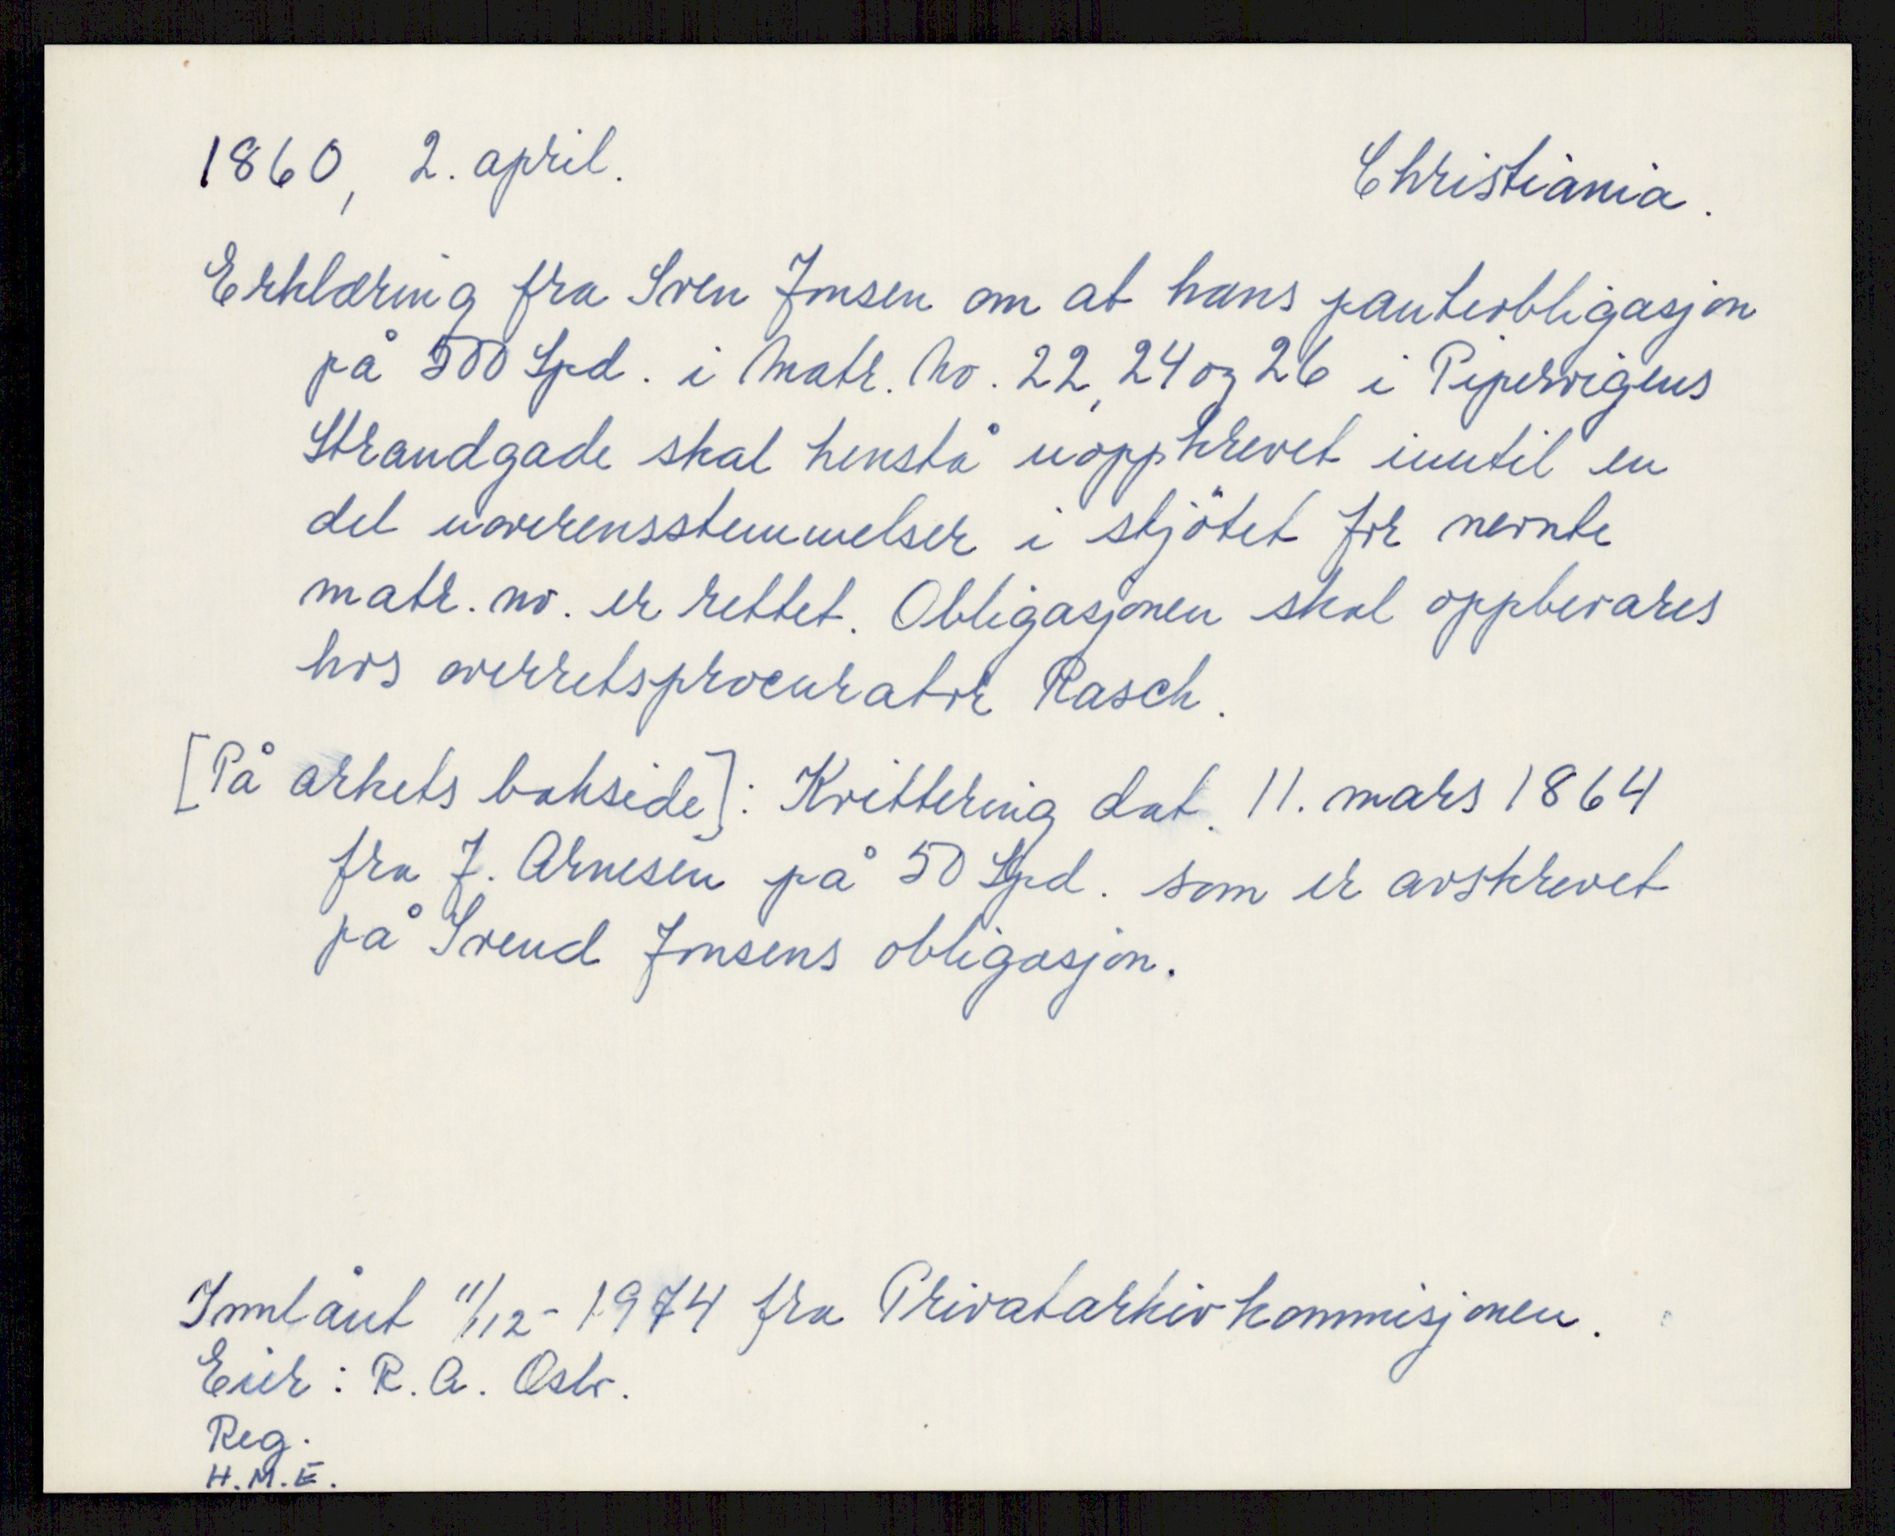 1860, 2. april. Christiania.
Erklæring fra Sven Jonsen om at hans panteobligasjon
på 500 Spd. i Matr. No. 22, 24 og 26 i Pipervigens
Strandgade skal henstå uoppkrevet inntil en
del uoverensstemmelser i skjötet for nevnte
matr. no. er rettet. Obligasjonen skal oppbevares
hos overretsprocurator Rasch.
[På arkets bakside]: Kvittering dat. 11. mars 1864
fra J. Arnesen på 50 Spd. som er avskrevet
på Svend Jonsens obligasjon.
Innlånt 11/12 - 1974 fra Privatarkivkommisjonen.
Eier: R. A. Oslo.
Reg.
H.M.E.